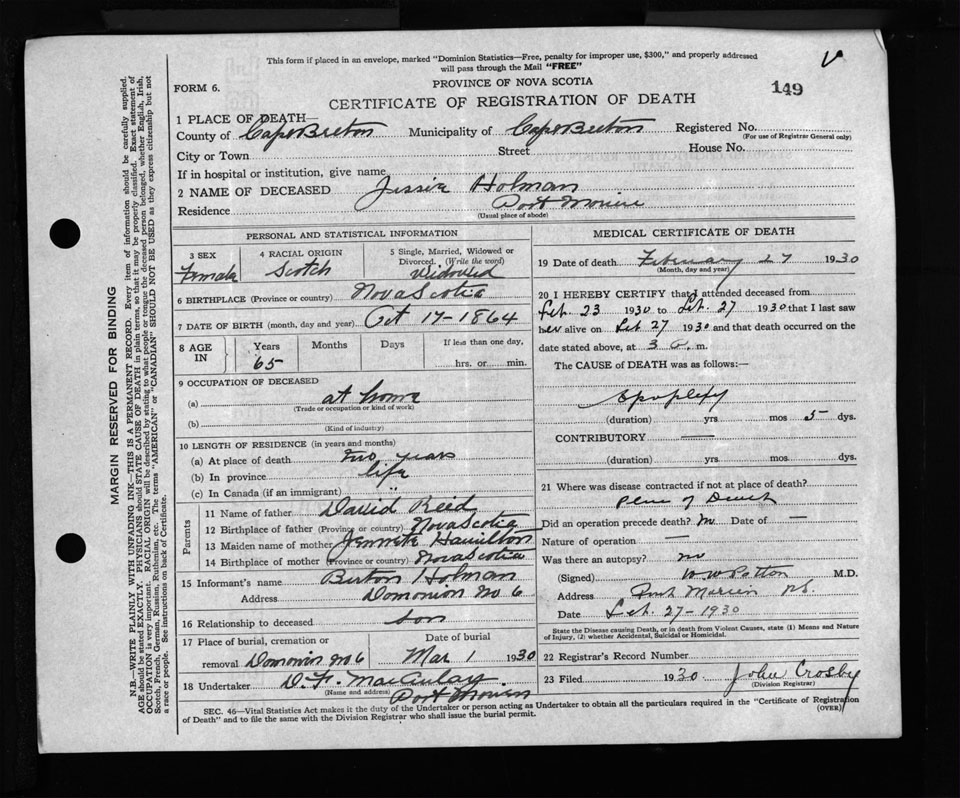 This form if placed in an envelope, marked "Dominion Statistics—Free, penalty for improper use, $300," and properly addressed
will pass through the Mail "FREE"
V
FORM 6.
PROVINCE OF NOVA SCOTIA
149
CERTIFICATE OF REGISTRATION OF DEATH
1 PLACE OF DEATH—
County of Cape Breton Municipality of Cape Breton Registered No.
(For use of Registrar General only)
City or Town Street House No.
If in hospital or institution, give name
2 NAME OF DECEASED Jessie Holman
Residence Port Morien
(Usual place of abode)
PERSONAL AND STATISTICAL INFORMATION
3 SEX Female
4 RACIAL ORIGIN Scotch
5 Single, Married, Widowed or Divorced. (Write the word) Widowed
6 BIRTHPLACE (Province or country) Nova Scotia
7 DATE OF BIRTH (month, day and year) Oct 17-1864
8 AGE IN Years Months Days If less than one day,
65 hrs. or min.
9 OCCUPATION OF DECEASED
(a) at home
(Trade or occupation or kind of work)
(b)
(Kind of industry)
10 LENGTH OF RESIDENCE (in years and months)
(a) At place of death two years
(b) In province life
(c) In Canada (if an immigrant)
Parents
11 Name of father David Reid
12 Birthplace of father (Province or country) Nova Scotia
13 Maiden name of mother Jennett Hamilton
14 Birthplace of mother (Province or country) Nova Scotia
15 Informant's name Burton Holman
Address Domonion No 6
16 Relationship to deceased son
17 Place of burial, cremation or Date of burial
removal Domonion No 6 Mar 1 1930
18 Undertaker D. F. MacAulay
(Name and address)
Port Morien
MEDICAL CERTIFICATE OF DEATH
19 Date of death February 27 1930
(Month, day and year)
20 I HEREBY CERTIFY that I attended deceased from
Feb. 23 1930 to Feb. 27 1930 that I last saw
her alive on Feb 27 1930 and that death occurred on
date stated above, at 3 m.
The CAUSE OF DEATH was as follows:—
Apoplexy
(duration) yrs mos 5 dys.
CONTRIBUTORY —
(duration) yrs mos. dys.
21 Where was disease contracted if not at place of death?
Place of Death
Did an operation precede death? no Date of —
Nature of operation —
Was there an autopsy? no
(Signed) W W Patton M.D.
Address Port Morien N.S.
Date Feb. 27-1930
State the Disease causing Death, or in death from Violent Causes, state (1) Means and Nature
of Injury, (2) whether Accidental, Suicidal or Homicidal.
22 Registrar's Record Number
23 Filed 1930 John Crosby
(Division Registrar)
SEC. 46—Vital Statistics Act makes it the duty of the Undertaker or person acting as Undertaker to obtain all the particulars required in the "Certificate of Registration
of Death" and to file the same with the Division Registrar who shall issue the burial permit.
(OVER)
MARGIN RESERVED FOR BINDING
N.B.—WRITE PLAINLY WITH UNFADING INK—THIS IS A PERMANENT RECORD. Every item of information should be carefully supplied.
AGE should be stated EXACTLY. PHYSICIANS should STATE CAUSE OF DEATH in plain terms, so that it may be properly classified. Exact statement of
OCCUPATION is very important. RACIAL ORIGIN will be described by stating to what people or tongue the deceased person belonged, whether English, Irish,
Scotch, French, German, Russian, Ruthenian, etc. The terms "AMERICAN" or "CANADIAN" SHOULD NOT BE USED as they express citizenship but not
a race or people. See instructions on back of Certificate.